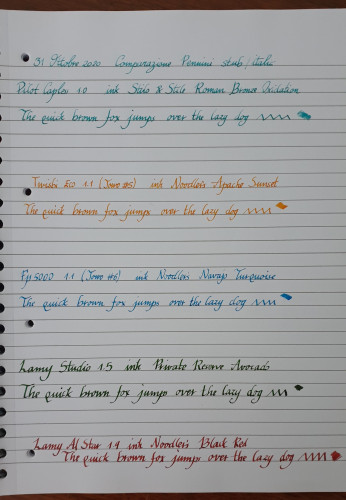 31 Ottobre 2020 Comparazione Pennini stub/italic
Pilot Caplex 1.0 ink Stilo & Stile Roman Bronze Oxidation
The quick brown fox jumps over the lazy dog
Twisbi Eco 1.1 (Jowo #5) ink Noodler's Apache Sunset
The quick brown fox jumps over the lazy dog
5000 1.1 (Jowo #6) ink Noodler's Navajo Turquoise
The quick brown fox jumps over the lazy dog
Lamy Studio 1.5 ink Private Reserve Avocado
The quick brown fox jumps over the lazy dog
Lamy Al Star 1.9 ink Noodler's Black Red
The quick brown fox jumps over the lazy dog